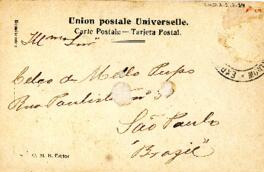 Union postale Universelle.
Carte Postale — Tarjeta Postal.
Illmo Snr
Celso de Mello
Rua Paulista nº 3
São Paulo
"Brazil"
Editor